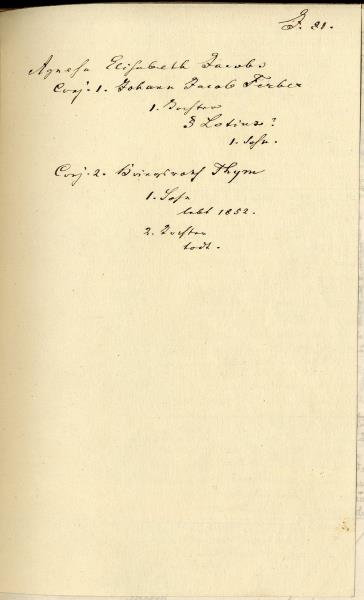 J. 31.
Agnesa Elisabeth Jacobs
Conj. 1. Johann Jacob Ferber
1. Tochter
§ Lotinz?
1. Sohn.
Conj. 2. Thym
1. Sohn
lebt 1852.
2. Tochter
todt.